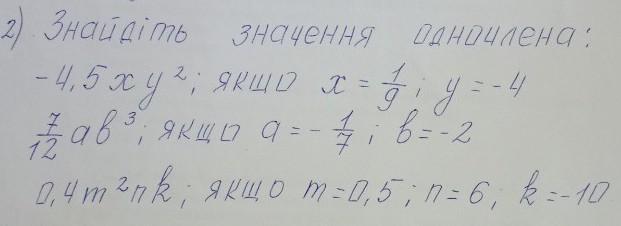 2) Знайдіть значення одночлена:
-4,5xy²; якщо x = 1/9; y = -4
7/12 ab³; якщо a = - 1/7; b = -2
0,4m²nk; якщо m = 0,5; n = 6; k = -10